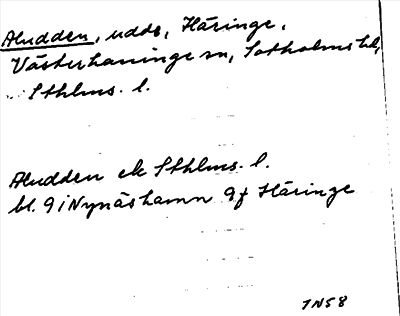 Aludden, udde, Häringe,
Västerhaninge sn, Sotholms hd,
Sthlms. l.
Aludden ek Sthlms. l.
bl. 9 i Nynäshamn 9f Häringe
IN58